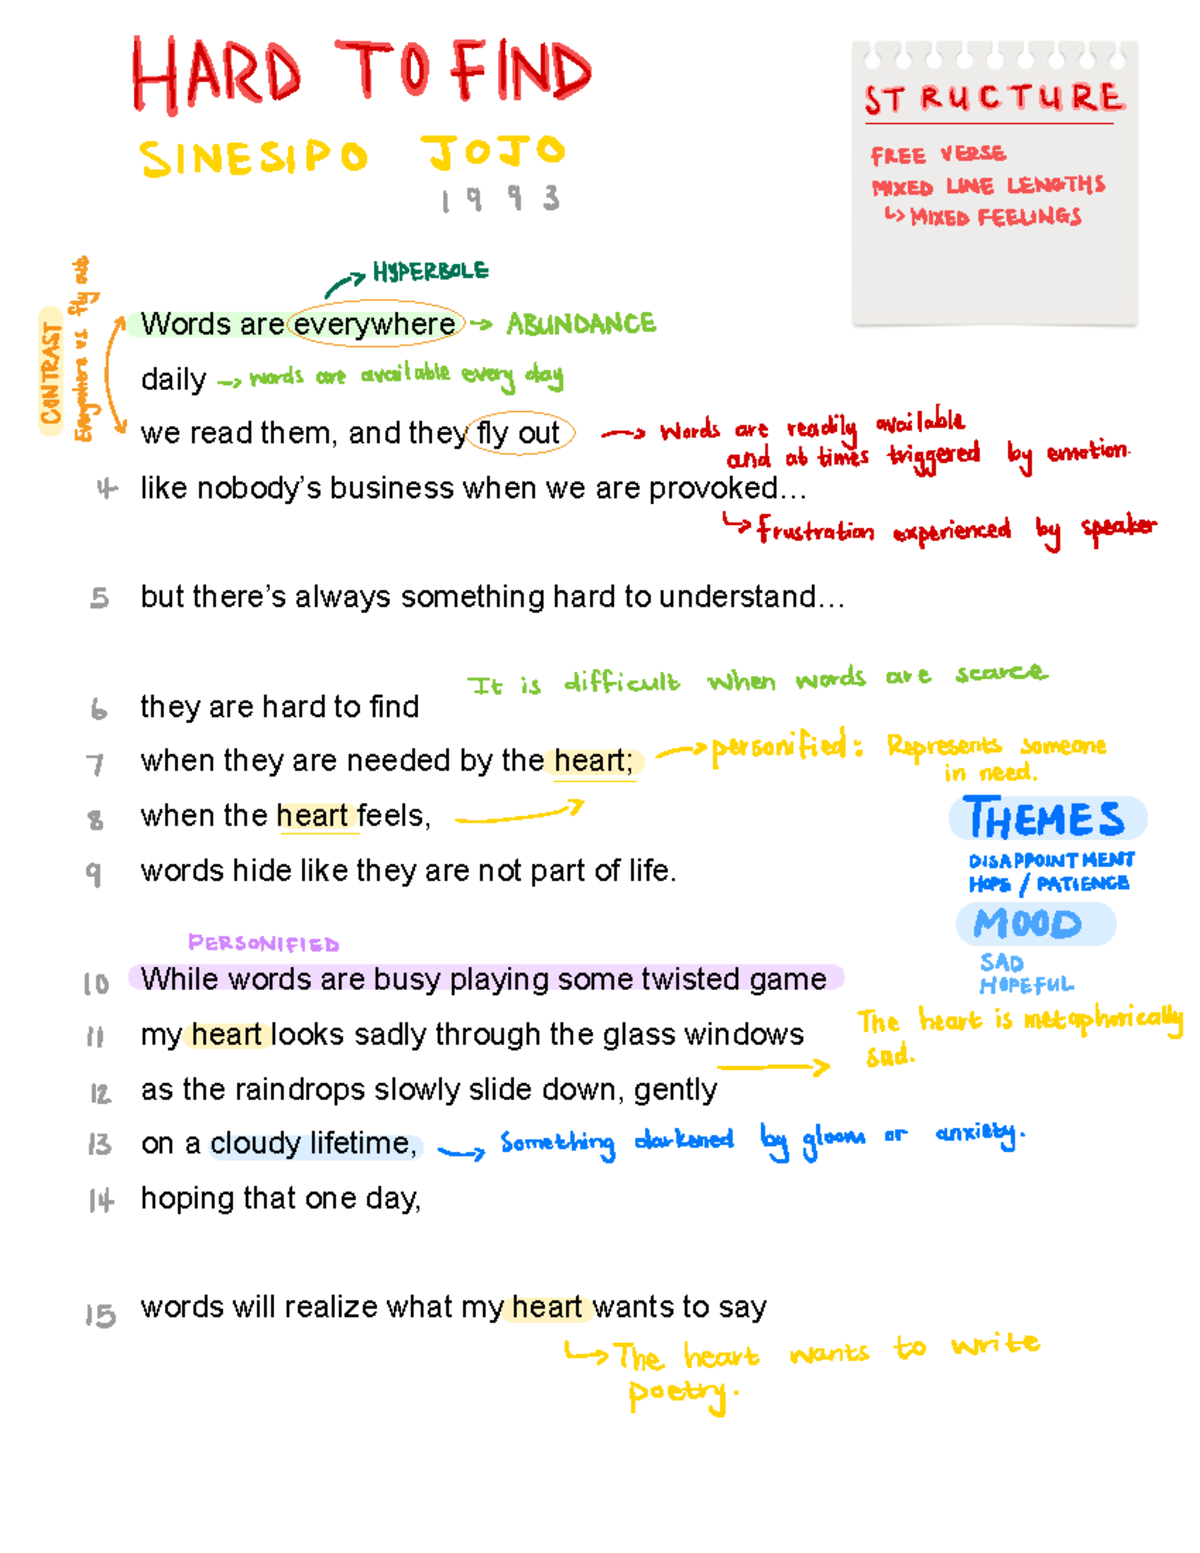 HARD TO FIND
SINESIPO JOJO
1993
STRUCTURE
FREE VERSE
MIXED LINE LENGTHS
↳ MIXED FEELINGS
CONTRAST
Everywhere vs. fly out
→ HYPERBOLE
Words are everywhere → ABUNDANCE
daily → words are available every day
we read them, and they fly out → Words are readily available
and at times triggered by emotion.
4 like nobody's business when we are provoked…
↳ frustration experienced by speaker
5 but there's always something hard to understand…
It is difficult when words are scarce
6 they are hard to find
7 when they are needed by the heart; → personified: Represents someone
in need.
8 when the heart feels, →
THEMES
DISAPPOINTMENT
HOPE / PATIENCE
9 words hide like they are not part of life.
MOOD
SAD
HOPEFUL
PERSONIFIED
10 While words are busy playing some twisted game
11 my heart looks sadly through the glass windows → The heart is metaphorically
sad.
12 as the raindrops slowly slide down, gently
13 on a cloudy lifetime, → Something darkened by gloom or anxiety.
14 hoping that one day,
15 words will realize what my heart wants to say
↳ The heart wants to write
poetry.